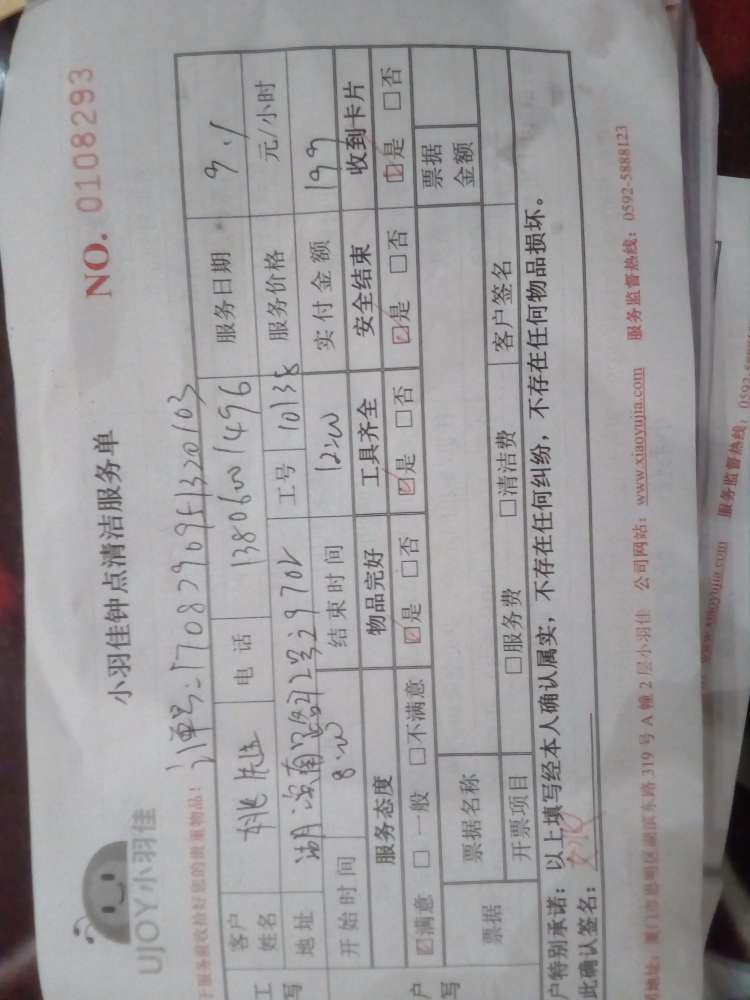 UJOY小羽佳
小羽佳钟点清洁服务单
NO. 0108293
服务前收拾好您的贵重物品!
订单号:1708290951320103
客户姓名 姚先生 电话 13806001496 服务日期 9.1
地址 工号 10138 服务价格 元/小时
开始时间 8:00 结束时间 12:00 实付金额 199
服务态度 物品完好 工具齐全 安全结束 收到卡片
☑满意 □一般 □不满意 ☑是 □否 ☑是 □否 ☑是 □否 ☑是 □否
票据 票据名称 票据金额
开票项目 □服务费 □清洁费 客户签名
户特别承诺: 以上填写经本人确认属实,不存在任何纠纷,不存在任何物品损坏。
此确认签名:
地址: 厦门市思明区湖滨东路 319 号 A 幢 2 层小羽佳 公司网站: www.xiaoyujia.com 服务监督热线: 0592-5888123
www.xiaoyujia.com 服务监督热线: